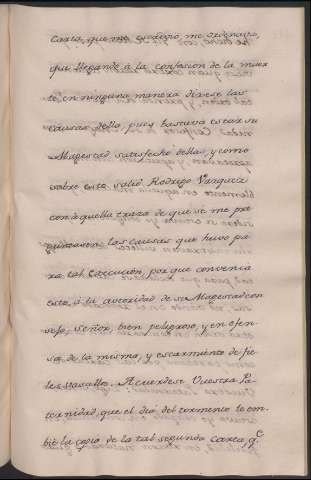 Carta, que me escrivio, me ordenava,
que llegando à la confesion de la muer
te, en ninguna manera dixese las
causas della, pues bastava estar su
Magestad satisfecho dellas, y como
sobre este salió Rodrigo Vazquez
con aquella traza de que se me pre
guntasen las causas que huvo pa
ra tal execucion, por que convenia
esto, á la autoridad de su Magestad con
sejo, Señor, bien peligroso, y en ofen
sa de la misma, y escarmiento de fie
les Vasallos. Acuerdese Vuestra Pa
ternidad, que el dia del tormento le em
bié la copia de la tal segunda Carta qe